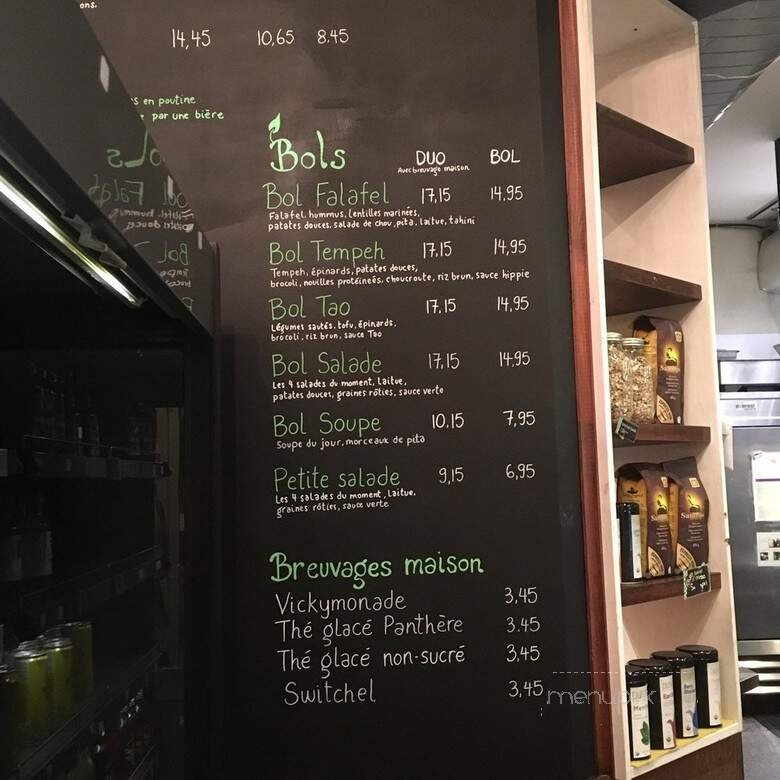 ons.
14,45 10,65 8,45
s en poutine
par une bière
Bols DUO BOL
Avec breuvage maison
Bol Falafel 17,15 14,95
Falafel, hummus, lentilles marinées,
patates douces, salade de chou, pita, laitue, tahini
Bol Tempeh 17,15 14,95
Tempeh, épinards, patates douces,
brocoli, nouilles protéineés, choucroute, riz brun, sauce hippie
Bol Tao 17,15 14,95
Légumes sautés, tofu, épinards,
brocoli, riz brun, sauce Tao
Bol Salade 17,15 14.95
Les 4 salades du moment, laitue,
patates douces, graines rôties, sauce verte
Bol Soupe 10.15 7,95
Soupe du jour, morceaux de pita
Petite salade 9,15 6,95
Les 4 salades du moment, laitue,
graines rôties, sauce verte
Breuvages maison
Vickymonade 3,45
Thé glacé Panthère 3.45
Thé glacé non-sucré 3,45
Switchel 3,45